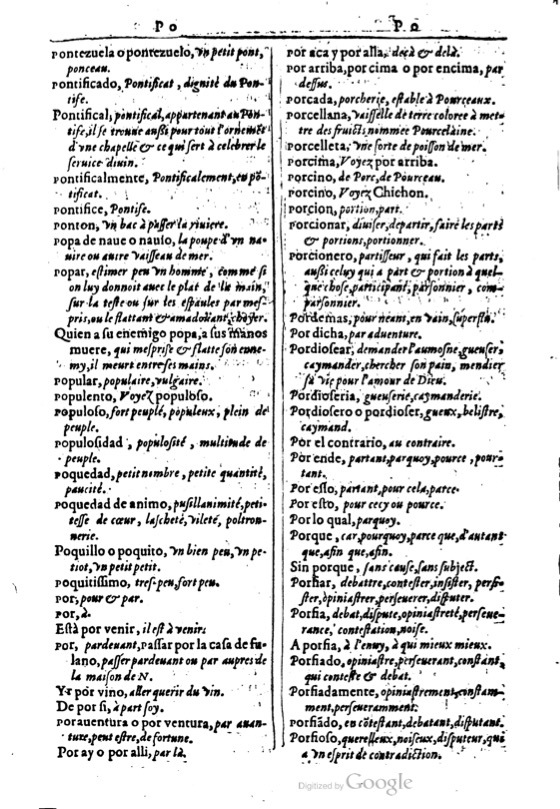 P O
pontezuela o pontezuelo, vn petit pont,
ponceau.
pontificado, Pontificat, dignité du Pon-
tife.
Pontifical, pontifical, appartenant au Pon-
tife, il se trouue außi pour tout l'ornemẽt
d'vne chapelle & ce qui sert à celebrer le
seruice diuin.
pontificalmente, Pontificalement, en põ-
tificat.
pontifice, Pontife.
ponton, vn bac à passer la riuiere.
popa de naue o nauio, la poupe d'vn na-
uire ou autre vaisseau de mer.
popar, estimer peu vn homme, comme si
on luy donnoit auec le plat de la main,
sur la teste ou sur les espaules par mes-
pris, ou le flattant & amadoüant, choyer.
Quien a su enemigo popa, a sus manos
muere, qui mesprise & flatte son enne-
my, il meurt entre ses mains.
popular, populaire, vulgaire.
populento, Voyez populoso.
populoso, fort peuplé, populeux, plein de
peuple.
populosidad, populosité, multitude de
peuple.
poquedad, petit nombre, petite quantité,
paucité.
poquedad de animo, pusillanimité, peti-
tesse de cœur, lascheté, vileté, poltron-
nerie.
Poquillo o poquito, vn bien peu, vn pe-
tiot, vn petit petit.
poquitissimo, tres-peu, fort peu.
por, pour & par.
por, à.
Està por venir, il est à venir.
por, pardeuant, passar por la casa de fu-
lano, passer pardeuant ou par aupres de
la maison de N.
Yr por vino, aller querir du vin.
De por si, à part soy.
porauentura o por ventura, par auan-
ture, peut estre, de fortune.
Por ay o por alli, par là.
P O
por aca y por alla, deçà & delà.
por arriba, por cima o por encima, par
dessus.
porcada, porcherie, estable à Pourceaux.
porcellana, vaisselle de terre coloree à met-
tre des fruicts, nommee Pourcelaine.
porcelleta, vne sorte de poisson de mer.
porcima, Voyez por arriba.
porcino, de Porc, de Pourceau.
porcino, Voyez Chichon.
porcion, portion, part.
porcionar, diuiser, departir, faire les parts
& portions, portionner.
porcionero, partisseur, qui fait les parts,
außi celuy qui a part & portion à quel-
que chose, participant, parsonnier, com-
parsonnier.
Pordemas, pour neant, en vain, superflu.
Por dicha, par aduenture.
Pordiosear, demander l'aumosne, gueuser,
caymander, chercher son pain, mendier
sa vie pour l'amour de Dieu.
Pordioseria, gueuserie, caymanderie.
Pordiosero o pordioser, gueux, belistre,
caymand.
Por el contrario, au contraire.
Por ende, partant, parquoy, pource, pour-
tant.
Por esso, partant, pour cela, parce.
Por esto, pour cecy ou pource.
Por lo qual, parquoy.
Porque, car, pourquoy, parce que, d'autant
que, afin que, afin.
Sin porque, sans cause, sans subject.
Porfiar, debattre, contester, insister, persi-
ster, opiniastrer, perseuerer, disputer.
Porfia, debat, dispute, opiniastreté, perseue-
rance, contestation, noise.
A porfia, à l'enuy, à qui mieux mieux.
Porfiado, opiniastre, perseuerant, constant,
qui conteste & debat.
Porfiadamente, opiniastrement, constam-
ment, perseueramment.
Porfiãdo, en cõtestant, debatant, disputant.
Porfioso, querelleux, noiseux, disputeur, qui
a vn esprit de contradiction.
Digitized by Google